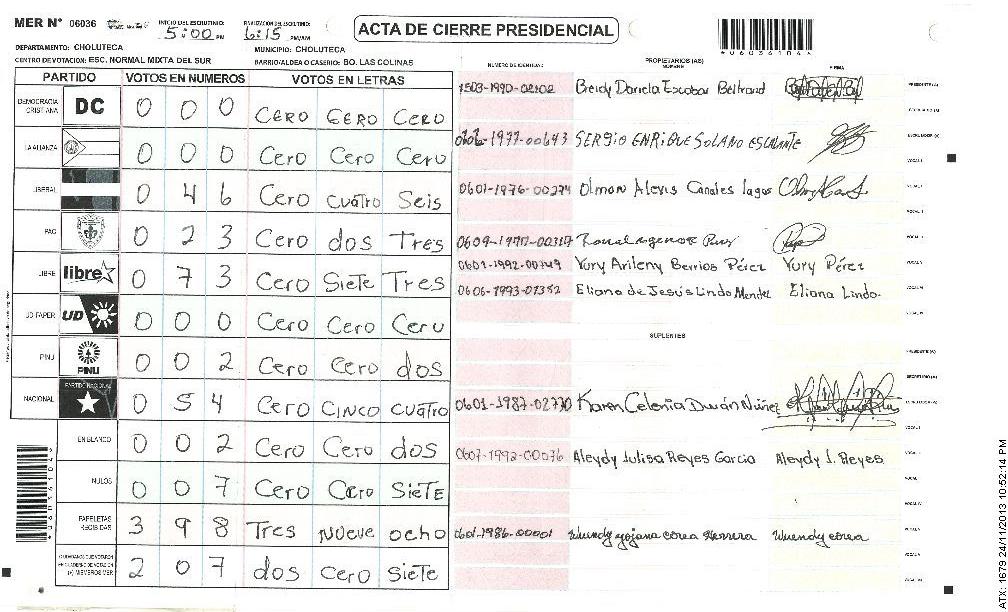 MER N° 06036 INICIO DEL ESCRUTINIO: 5:00 PM FINALIZACION DEL ESCRUTINIO: 6:15 PM/AM ACTA DE CIERRE PRESIDENCIAL
DEPARTAMENTO: CHOLUTECA MUNICIPIO: CHOLUTECA
CENTRO DE VOTACION: ESC. NORMAL MIXTA DEL SUR BARRIO/ALDEA O CASERIO: BO. LAS COLINAS
PARTIDO VOTOS EN NUMEROS VOTOS EN LETRAS
DEMOCRACIA CRISTIANA DC 0 0 0 Cero Cero Cero
LA ALIANZA 0 0 0 Cero Cero Cero
LIBERAL 0 4 6 Cero cuatro Seis
PAC 0 2 3 Cero dos Tres
LIBRE libre 0 7 3 Cero Siete Tres
UD FAPER UD 0 0 0 Cero Cero Cero
PINU PINU 0 0 2 Cero Cero dos
NACIONAL PARTIDO NACIONAL 0 5 4 Cero CINCO cuatro
EN BLANCO 0 0 2 Cero Cero dos
NULOS 0 0 7 Cero Cero SieTE
PAPELETAS RECIBIDAS 3 9 8 Tres NUEVE ocho
2 0 7 dos cero siete
NUMERO DE IDENTIDAD PROPIETARIOS (AS) NOMBRE FIRMA
Beidy Daniela Escobar Beltrand
SERGIO ENRIQUE SOLANO ESCALANTE
0601-1976-00274 Olman Alexis Canales lagos
0601-1992-00749 Yury Arileny Berrios Pérez Yury Pérez
0606-1993-01352 Eliana de Jesús Lindo Mendez Eliana Lindo.
SUPLENTES
0601-1987-02770 Karen Celenia Duván Núñez
0607-1992-00076 Aleydy Julisa Reyes Garcia Aleydy J. Reyes.
0601-1986-00001 Wuendy yojana corea Herrera Wuendy corea
ATX: 1679 24/11/2013 10:52:14 PM